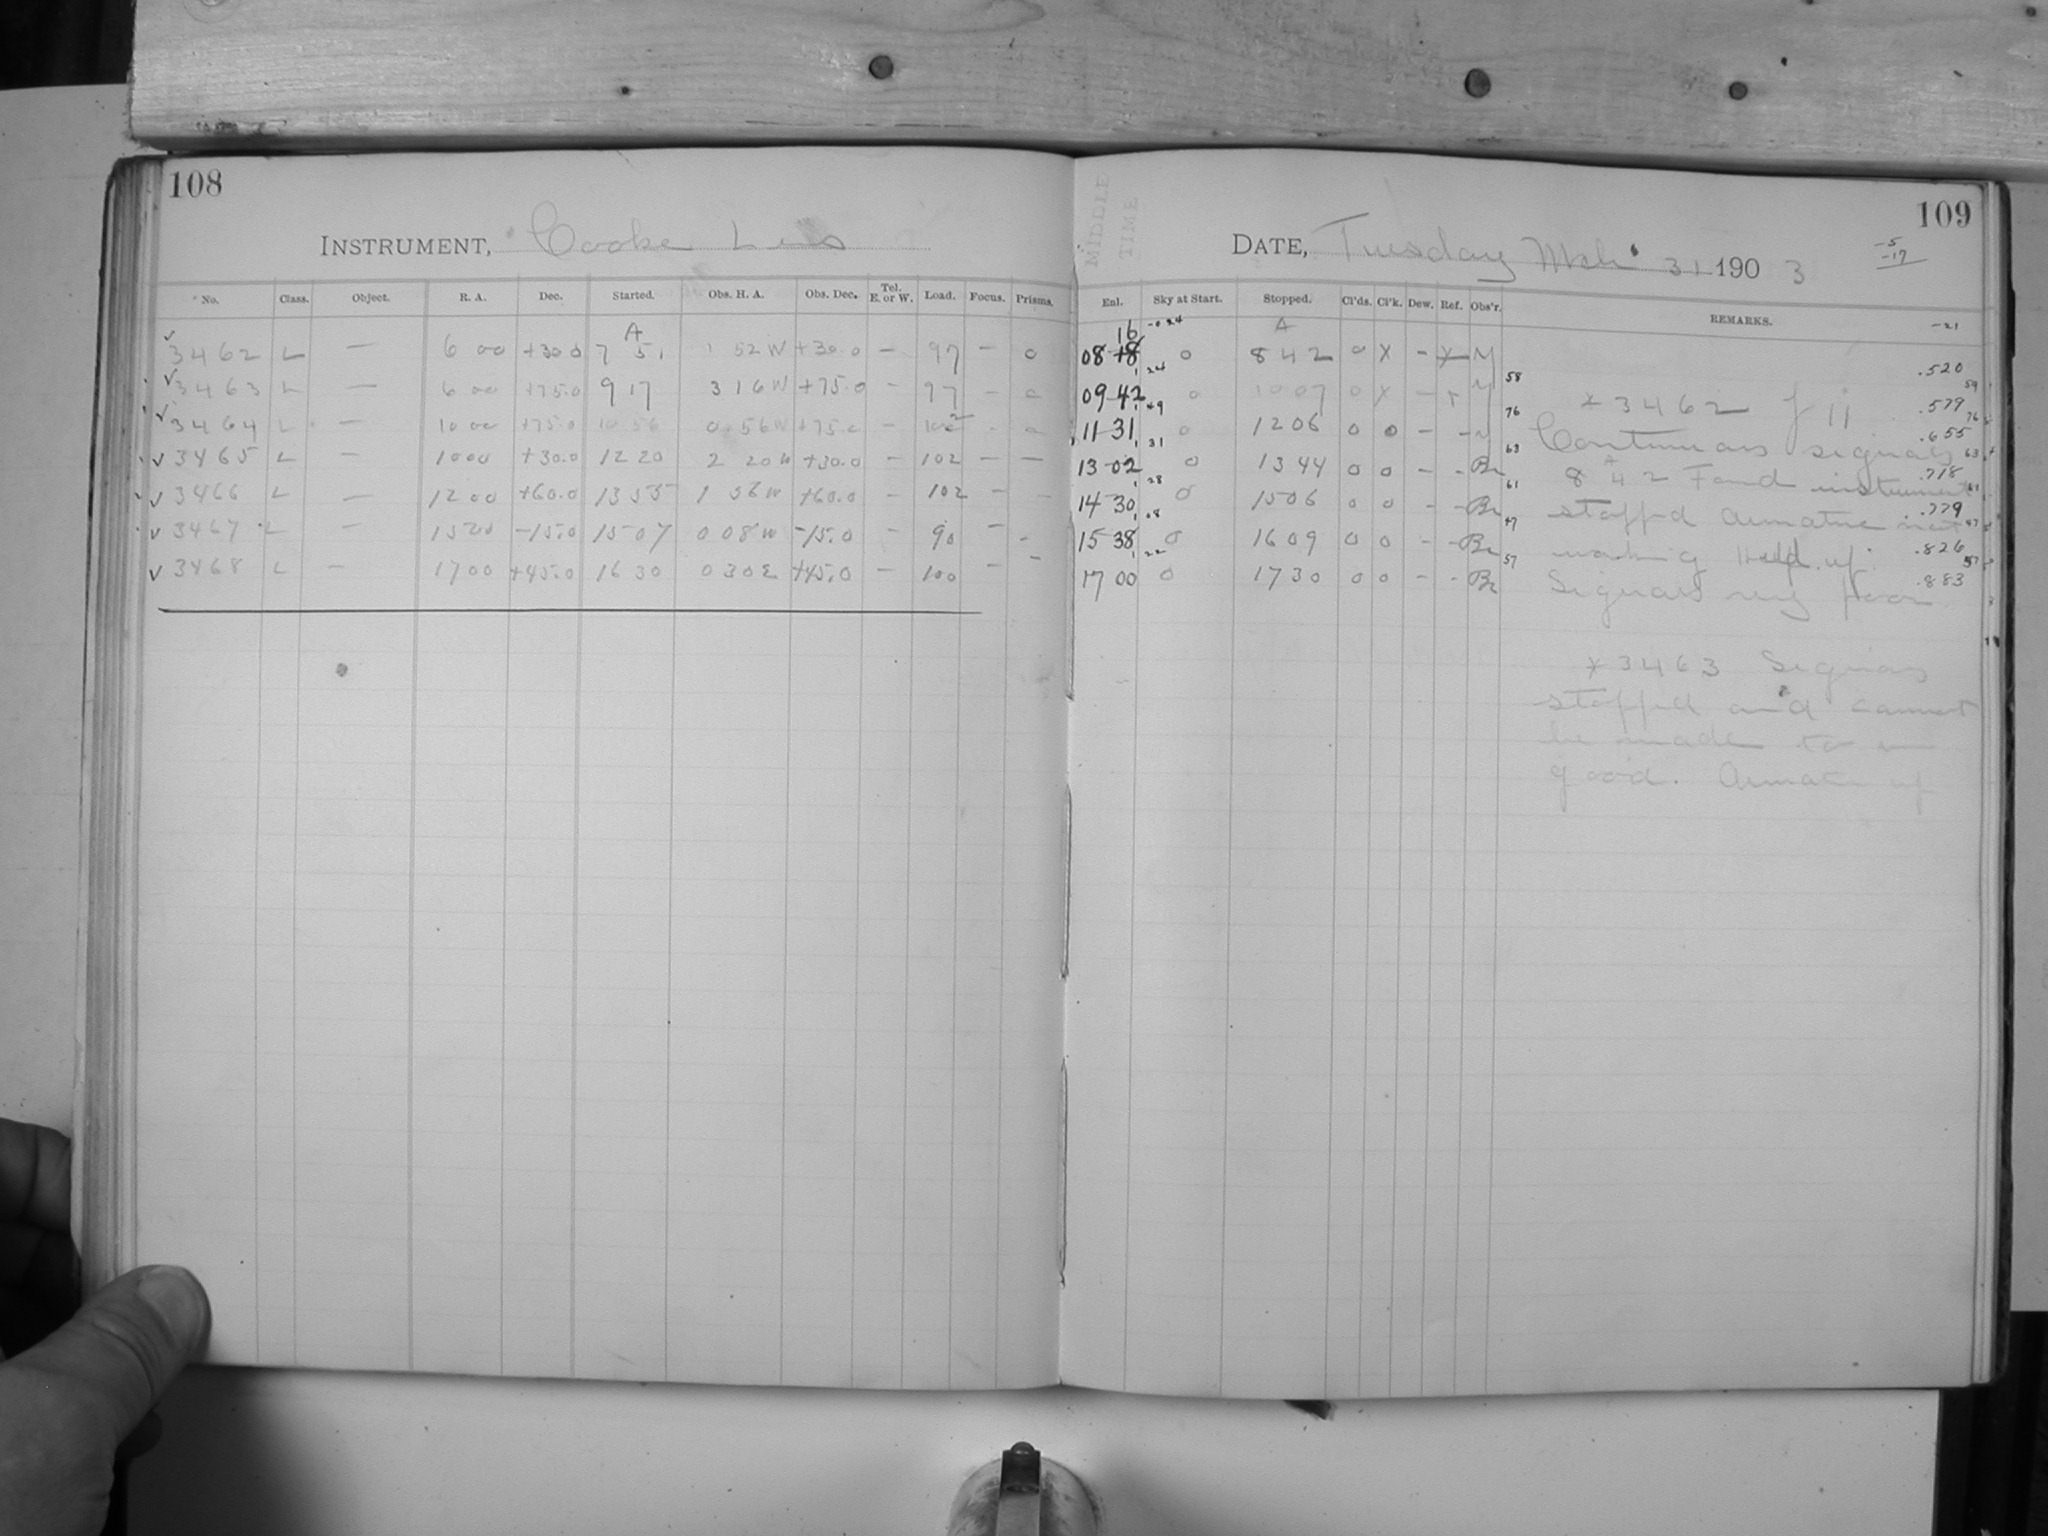 108
INSTRUMENT, Cooke Lens
No. Class. Object. R. A. Dec. Started. Obs. H. A. Obs. Dec. Tel. E. or W. Load. Focus. Prisms.
A
✓ 3462 L — 6 00 +30.0 7 51 1 52 W +30.0 — 97 — 0
✓ 3463 L — 6 00 +75.0 9 17 3 16 W +75.0 — 97 — 0
✓ 3464 L — 10 00 +75.0 10 56 0 56 W +75.0 — 102 - 0
✓ 3465 L — 10 00 +30.0 12 20 2 20 W +30.0 — 102 — —
✓ 3466 L — 12 00 +60.0 13 55 1 56 W +60.0 — 102 — -
✓ 3467 L — 15 00 -15.0 15 07 0 08 W -15.0 — 90 — -
✓ 3468 L — 17 00 +45.0 16 30 0 30 E +45.0 — 100 — —
109
MIDDLE TIME
DATE, Tuesday Mch 31 1903
-5
-17
Enl. Sky at Start. Stopped. Cl'ds. Cl'k. Dew. Ref. Obs'r. REMARKS.
-21
16 -0.24 A
08 18 0 8 42 0 X - X M .520
24 58
09 42 0 10 07 0 X - M .579
49 76
11 31 0 12 06 0 0 - - M .655
31 63
13 02 0 13 44 0 0 - - Br .718
28 61
14 30 0 15 06 0 0 - - Br .779
08 47
15 38 0 16 09 0 0 - - Br .826
22 57
17 00 0 17 30 0 0 - - Br .883
x 3462
Continuous signals
8 42 Found instrument
stopped armature not
working Held up.
Signals very poor
x 3463 Signals
stopped and cannot
be made to run
good. Armature up